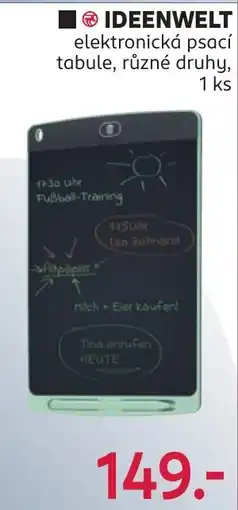 IDEENWELT
elektronická psací
tabule, různé druhy,
1 ks
17:30 Uhr
Fußball-Training
Milch + Eier kaufen!
Tina anrufen
HEUTE
149.-